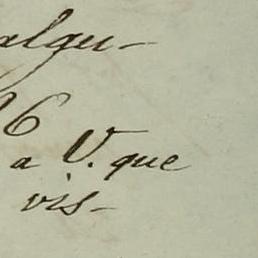 algu-
6
a V. que
vis-